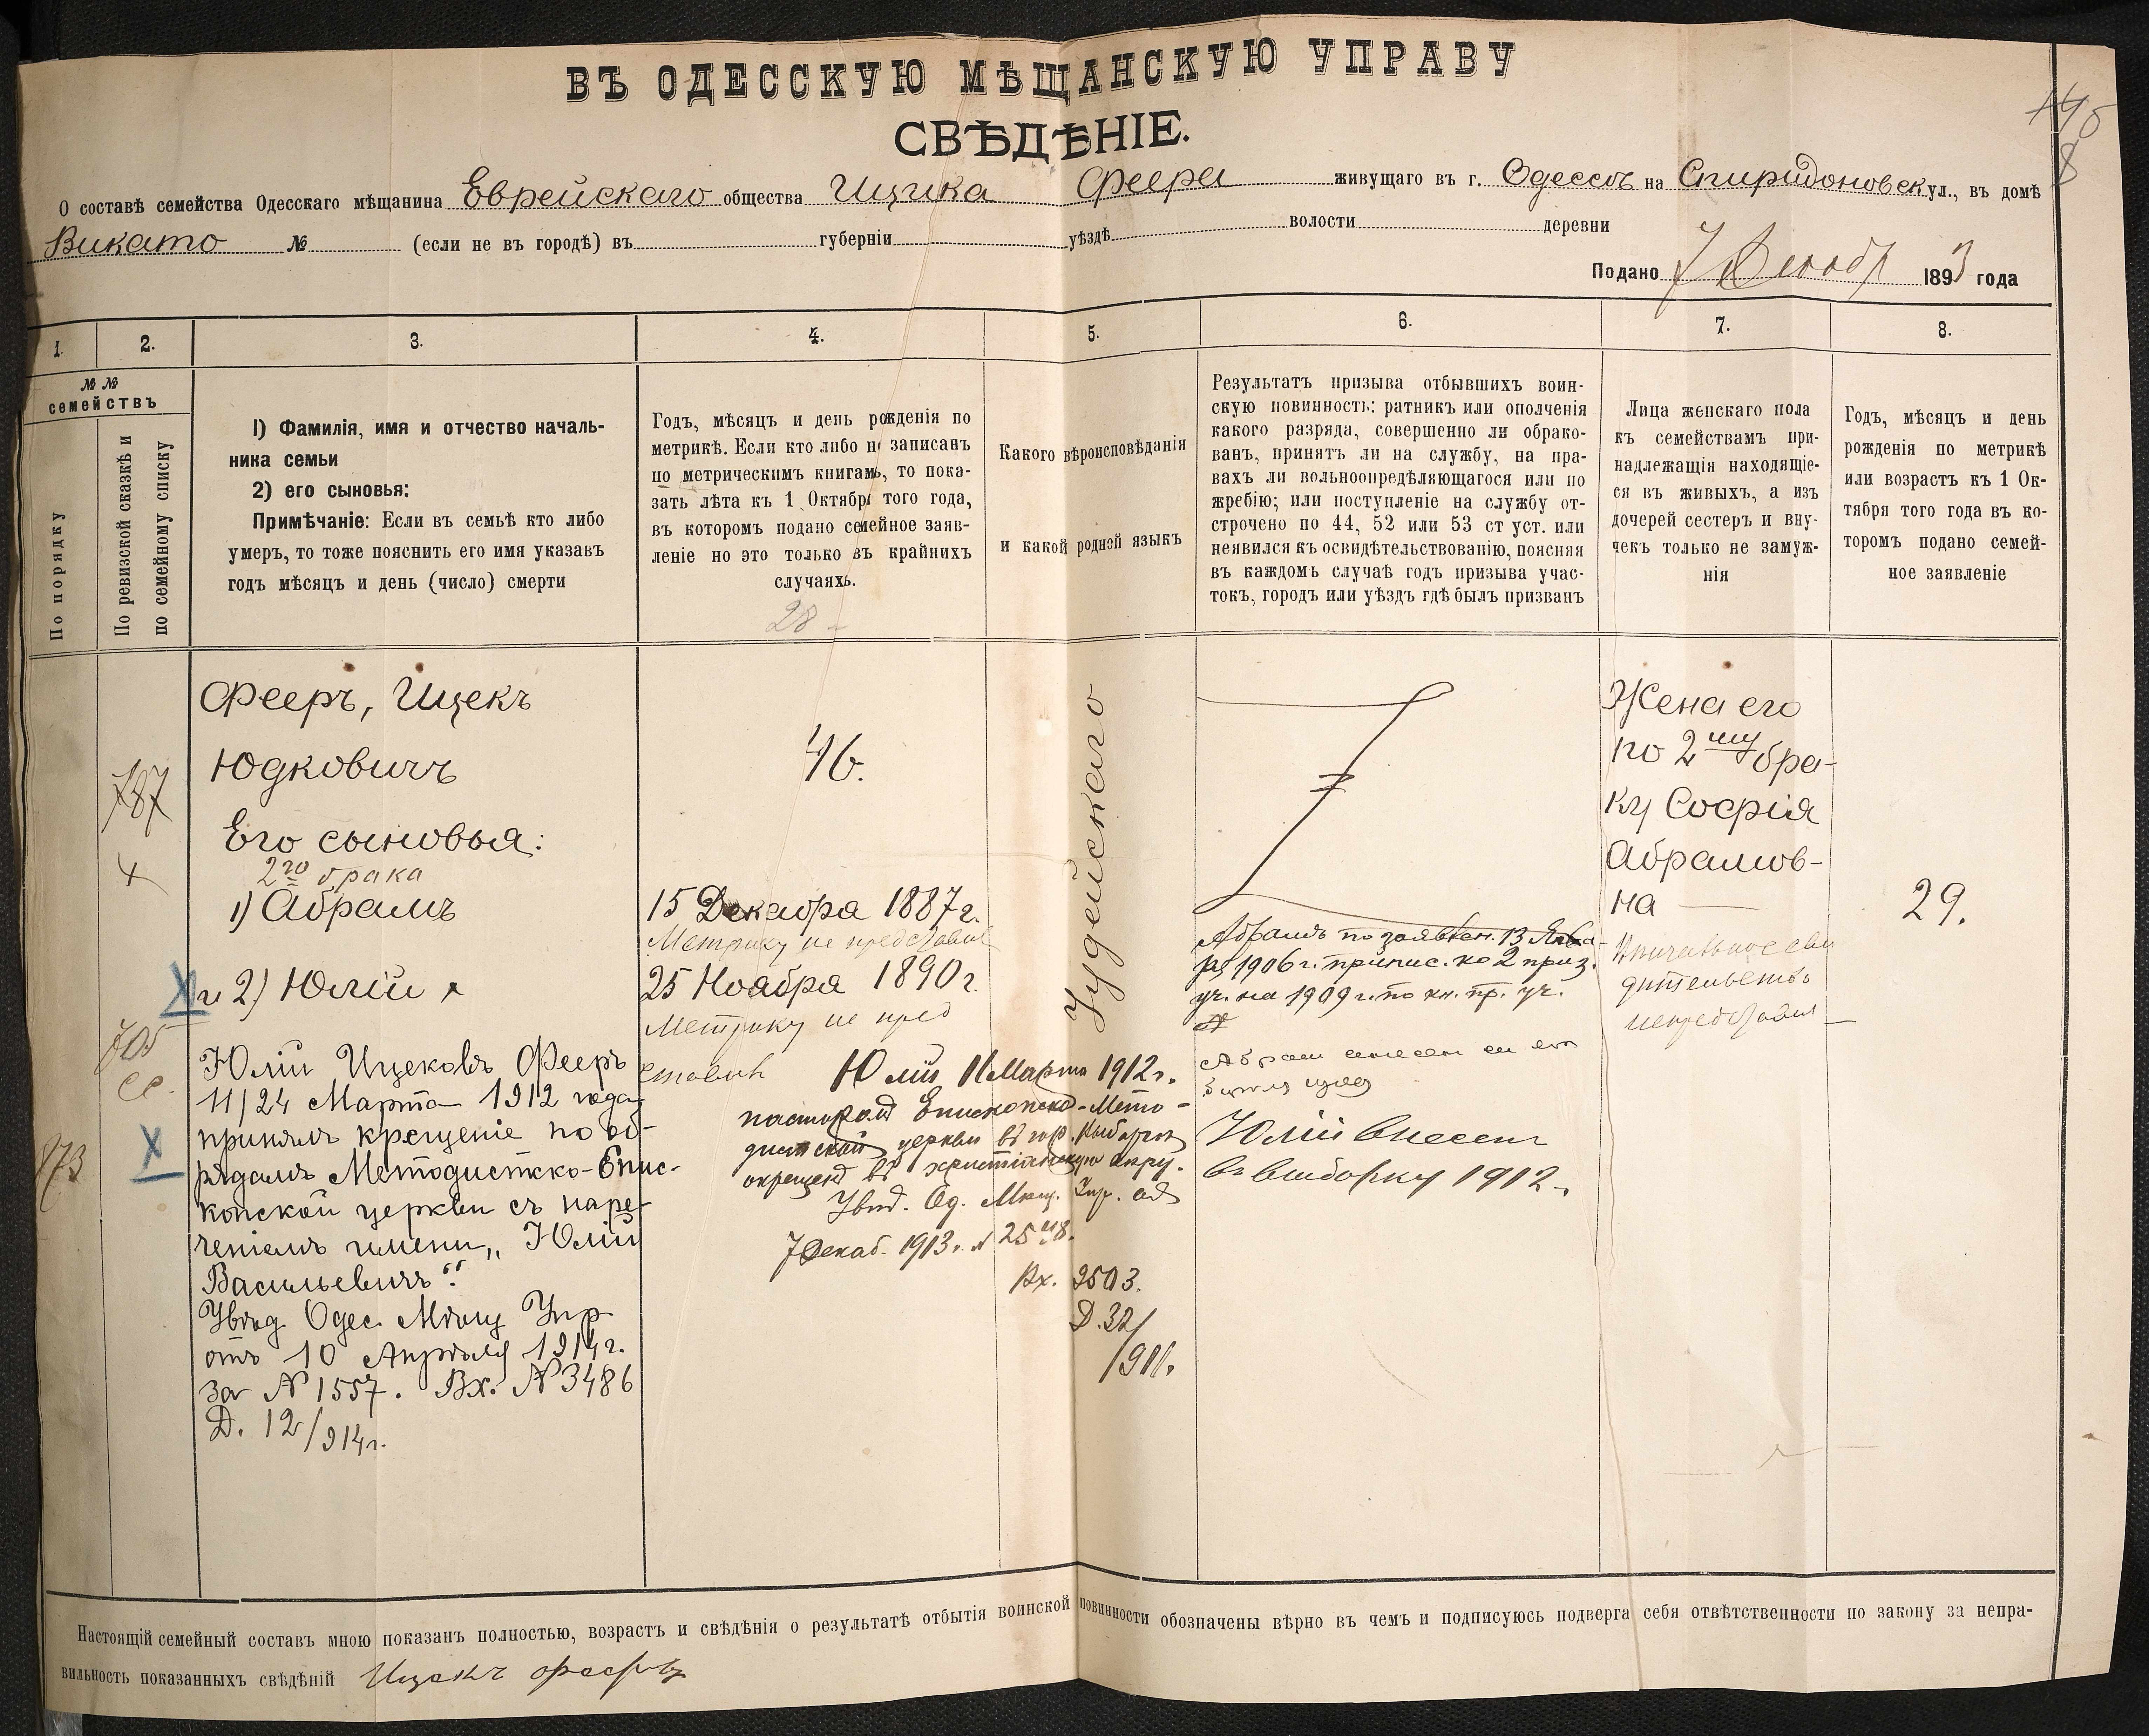 ВЪ ОДЕССКУЮ МѢЩАНСКУЮ УПРАВУ
СВѢДѢНІЕ.
О составѣ семейства Одесскаго мѣщанина Еврейскаго общества Ицика Феера живущаго въ г. Одессѣ на Спиридоновск ул., въ домѣ
Викато № (если не въ городѣ) въ губерніи уѣздѣ волости деревни
Подано 7 Декабр 1893 года
1. 2. 3. 4. 5. 6. 7. 8.
№ №
семействъ
По порядку
По ревизской сказкѣ и
по семейному списку
1) Фамилія, имя и отчество началь-
ника семьи
2) его сыновья:
Примѣчаніе: Если въ семьѣ кто либо
умеръ, то тоже пояснить его имя указавъ
годъ мѣсяцъ и день (число) смерти
Годъ, мѣсяцъ и день рожденія по
метрикѣ. Если кто либо не записанъ
по метрическимъ книгамъ, то пока-
зать лѣта къ 1 Октября того года,
въ которомъ подано семейное заяв-
леніе но это только въ крайнихъ
случаяхъ.
28
Какого вѣроисповѣданія
и какой родной языкъ
Результатъ призыва отбывшихъ воин-
скую повинность: ратникъ или ополченія
какого разряда, совершенно ли обрако-
ванъ, принятъ ли на службу, на пра-
вахъ ли вольноопредѣляющагося или по
жребію; или поступленіе на службу от-
строчено по 44, 52 или 53 ст уст. или
неявился къ освидѣтельствованію, поясняя
въ каждомъ случаѣ годъ призыва учас-
токъ, городъ или уѣздъ гдѣ былъ призванъ
Лица женскаго пола
къ семействамъ при-
надлежащія находящіе-
ся въ живыхъ, а изъ
дочерей сестеръ и вну-
чекъ только не замуж-
нія
Годъ, мѣсяцъ и день
рожденія по метрикѣ
или возрастъ къ 1 Ок-
тября того года въ ко-
торомъ подано семей-
ное заявленіе
787
705
873
Фееръ, Ицекъ
Юдковичъ
Его сыновья:
2го брака
1) Абрамъ
и 2) Юлій
Юлій Ицековъ Фееръ
11/24 Марта 1912 года
принялъ крещеніе по об-
рядамъ Методистско-Епис-
копской церкви съ наре-
ченіемъ имени „Юлій
Васильевичъ".
Увѣд Одес. Мѣщ Упр
отъ 10 Апрѣля 1914 г.
за № 1557. Вх. № 3486
Д. 12/914 г.
46.
15 Декабра 1887 г.
Метрику не представил
25 Ноабра 1890 г.
Метрику не пред
ставил
Іудейскаго
Юлій 11 Марта 1912 г.
пасторомъ Епископско-Мето-
дистской церкви въ гор.
окрещенъ въ христіанскую
Увѣд. Од. Мѣщ. Упр. отъ
7 Декаб. 1913 г. №
Вх. 9503.
Д. 32/
Абрамъ по заявлен. 13 Янва-
ря 1906 г. припис. ко 2 приз.
уч. на 1909 г. по кн. пр. уч.
Юлій внесенъ
въ выборку 1912 г.
Жена его
по 2му бра-
ку Софія
Абрамов-
на
29.
Настоящій семейный составъ мною показанъ полностью, возрастъ и свѣдѣнія о результатѣ отбытія воинской повинности обозначены вѣрно въ чемъ и подписуюсь подверга себя отвѣтственности по закону за непра-
вильность показанныхъ свѣдѣній Ицекъ Фееръ